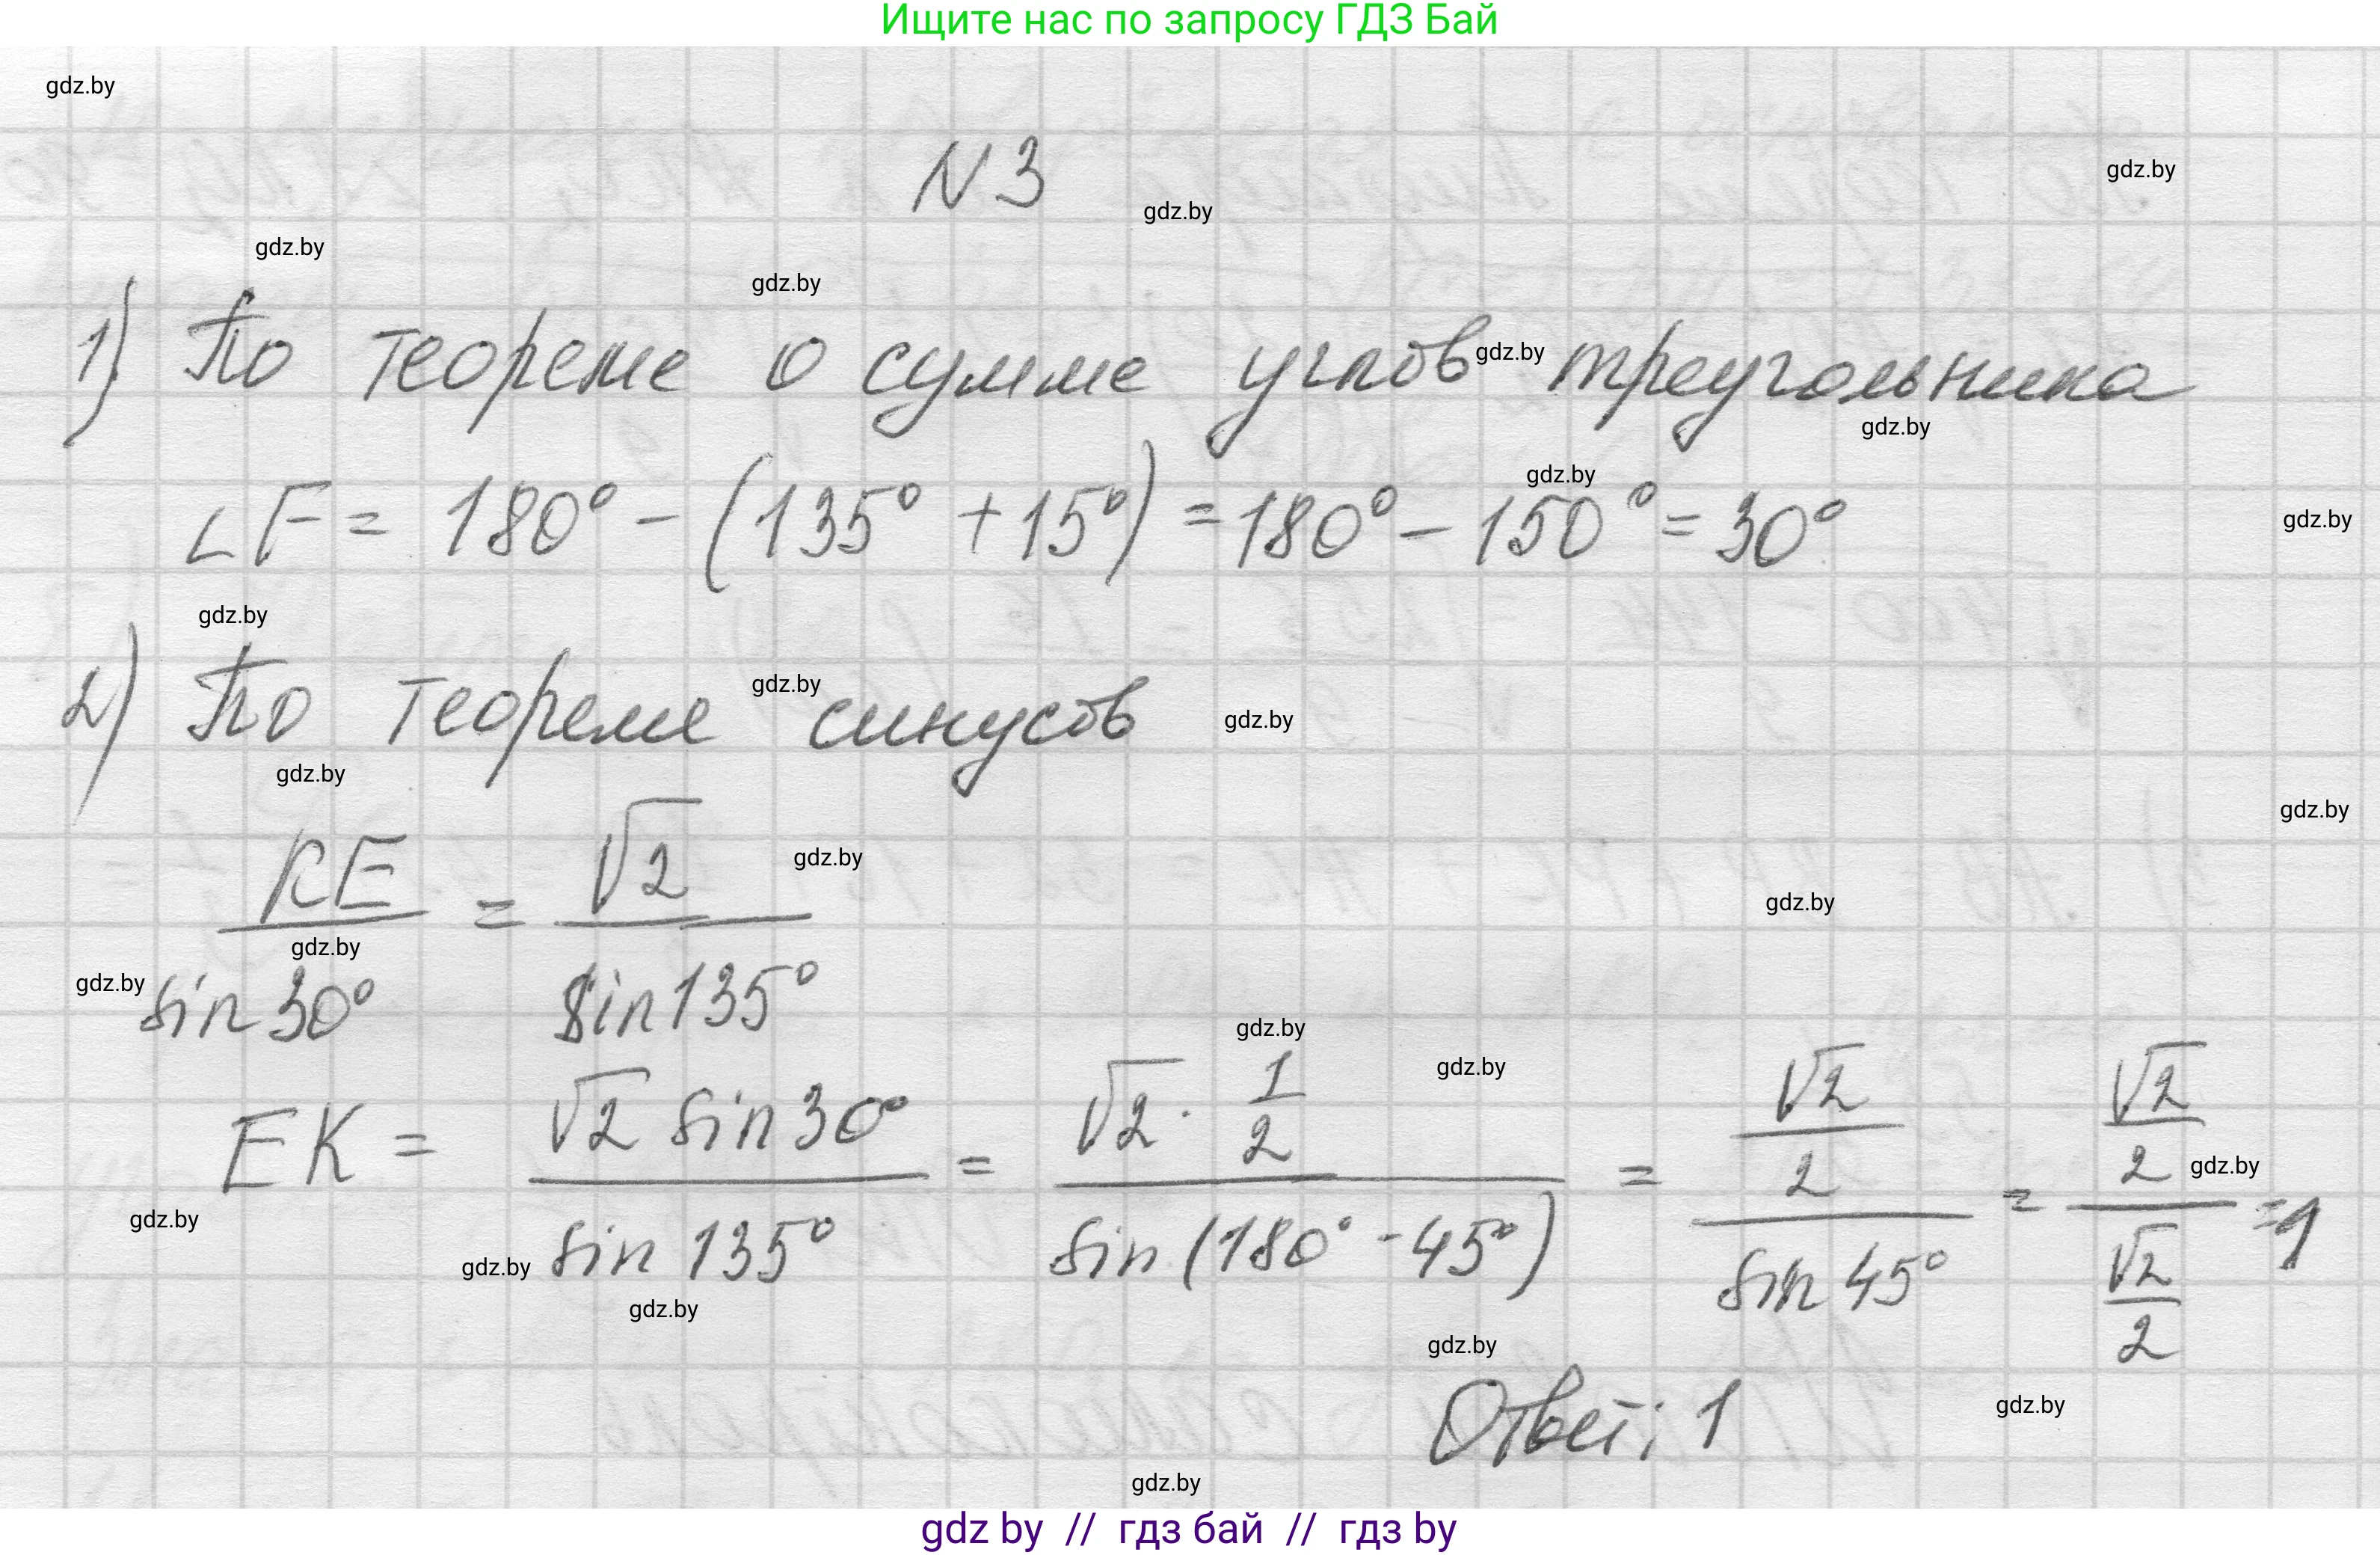 Ищите нас по запросу ГДЗ Бай
gdz.by
N 3
gdz.by
gdz.by
gdz.by
gdz.by
1) По теореме о сумме углов gdz.by треугольника
gdz.by
gdz.by
∠F = 180° - (135° + 15°) = 180° - 150° = 30°
gdz.by
gdz.by
2) По теореме gdz.by синусов gdz.by
gdz.by
gdz.by
KE/sin 30° = √2/sin 135°
gdz.by
gdz.by
gdz.by
gdz.by
gdz.by
gdz.by
EK = √2 sin 30°/sin 135° = √2 · 1/2/sin (180° - 45°) = √2/2/sin 45° = √2/2/√2/2 = 1
gdz.by
gdz.by
gdz.by
gdz.by
gdz.by
Ответ: 1
gdz.by
gdz.by
gdz by // гдз бай // гдз by